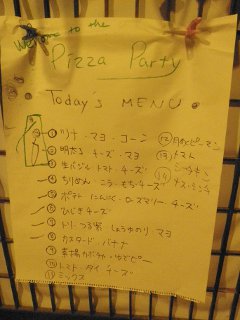 Welcome to the
Pizza Party
Today's MENU
① ツナ・マヨ・コーン
② 明太子 チーズ・マヨ
③ 生バジル トマト・チーズ
④ ちりめん・ニラ・もち・チーズ
⑤ ポテト にんにく・ローズマリー・チーズ
⑥ ひじきチーズ
⑦ トリ・つる紫 しょうゆのり マヨ
⑧ カスタード バナナ
⑨ 素揚カボチャ・ゆでピー
⑩ トマト タイ チーズ
⑪ ミックス
⑫ ピーマン
⑬ トマト
シーチキン
⑭ ナス・ミンチ